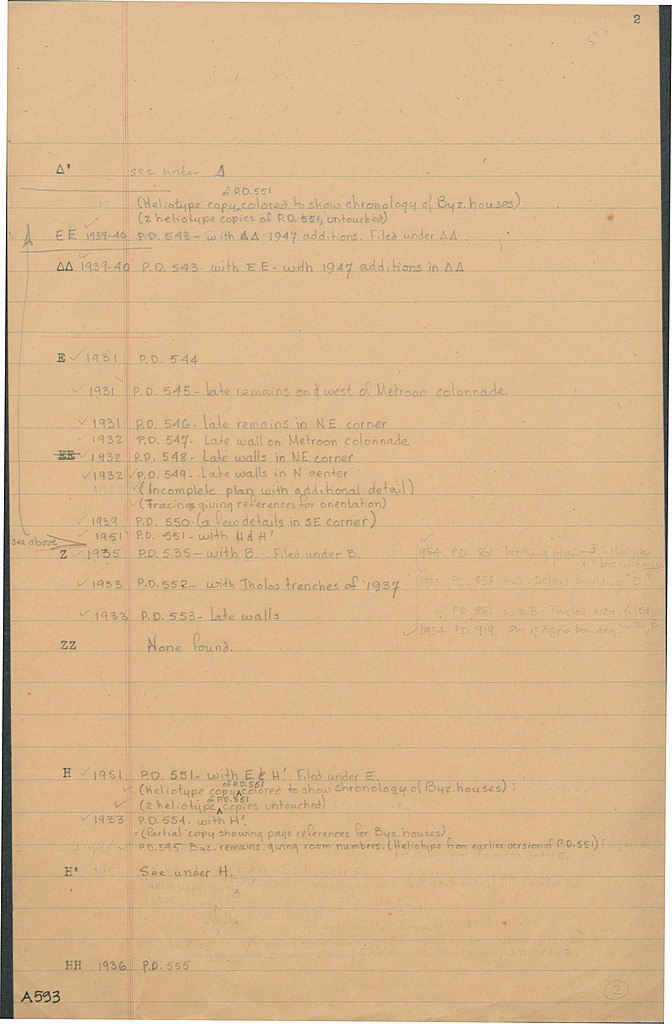 2
Δ' see under Δ
of P.D. 551
(Heliotype copy colored to show chronology of Byz. houses)
(2 heliotype copies of P.D. 551, untouched)
EE ✓ 1939-40 P.D. 543 - with ΔΔ 1947 additions. Filed under ΔΔ
ΔΔ ✓ 1939-40 P.D. 543 - with EE - with 1947 additions in ΔΔ
E ✓ 1931 P.D. 544
✓ 1931 P.D. 545 - late remains on & west of Metroon colonnade
✓ 1931 P.D. 546 - late remains in NE corner
✓ 1932 P.D. 547 - Late wall on Metroon colonnade
EE ✓ 1932 P.D. 548 - Late walls in NE corner
✓ 1932 ✓ P.D. 549 - Late walls in N center
✓ (Incomplete plan with additional detail)
✓ (Tracings giving references for orientation)
✓ 1939 P.D. 550 (a few details in SE corner)
✓ 1951 P.D. 551 - with H & H'
see above
Z ✓ 1935 P.D. 535 - with B. Filed under B.
1954 P.D. plan - 3
✓ 1933 P.D. 552 - with Tholos trenches of 1937
P.D. 858 Details building "D"
✓ 1933 P.D. 553 - late walls
P.D. 851 with B. Tholos area, filed with B
✓ 1954 P.D. 919 of Agora boundary
ZZ None found.
H ✓ 1951 P.D. 551 - with E & H'. Filed under E
of P.D. 551
✓ (Heliotype copy colored to show chronology of Byz. houses)
of P.D. 551
✓ (2 heliotype copies untouched)
✓ 1933 P.D. 554 - with H'.
(Partial copy showing page references for Byz. houses)
P.D. 595 Byz. remains, giving room numbers. (Heliotype from earlier version of P.D. 551)
H' See under H.
HH 1936 P.D. 555
A593
2